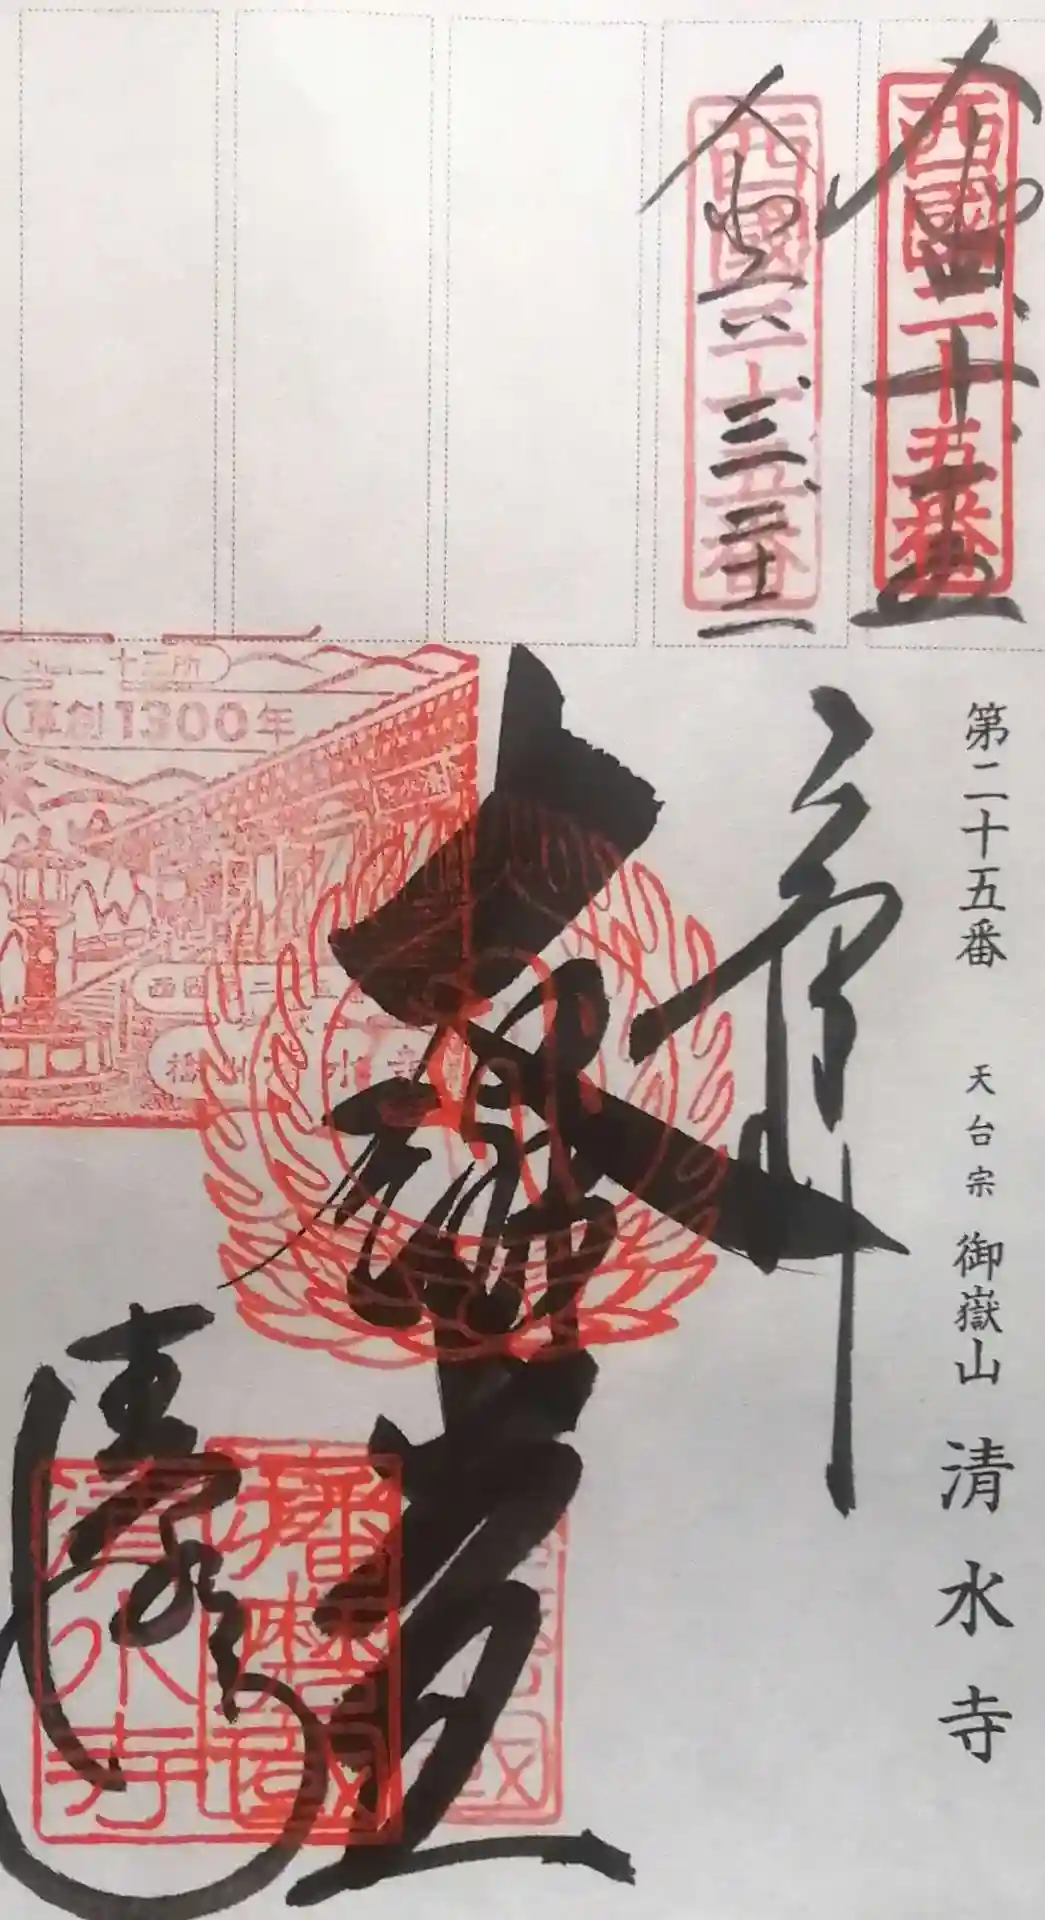 西國二十五番
西國二十五番
第二十五番 天台宗 御嶽山 清水寺
奉拝
大講堂
草創1300年
播州清水寺
清水寺
播磨國
清水寺